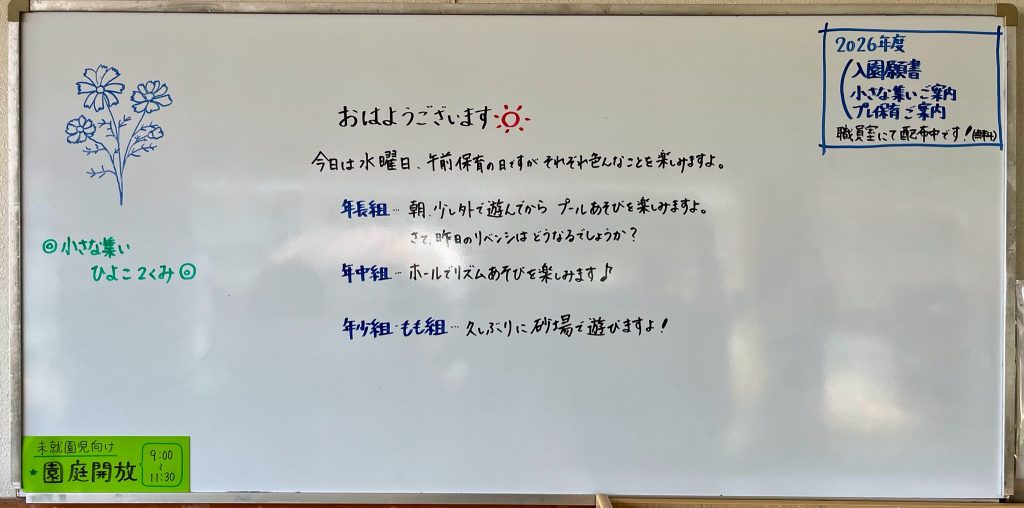 おはようございます
今日は水曜日、午前保育の日ですが それぞれ色んなことを楽しみますよ。
年長組… 朝、少し外で遊んでから プールあそびを楽しみますよ。
さて、昨日のリベンジは どうなるでしょうか？
年中組… ホールでリズムあそびを楽しみます♪
年少組・もも組… 久しぶりに 砂場で遊びますよ！
◎小さな集い
ひよこ2くみ◎
2026年度
入園願書
小さな集いご案内
プレ保育ご案内
職員室にて配布中です！
未就園児向け
★園庭開放
9:00
〜
11:30